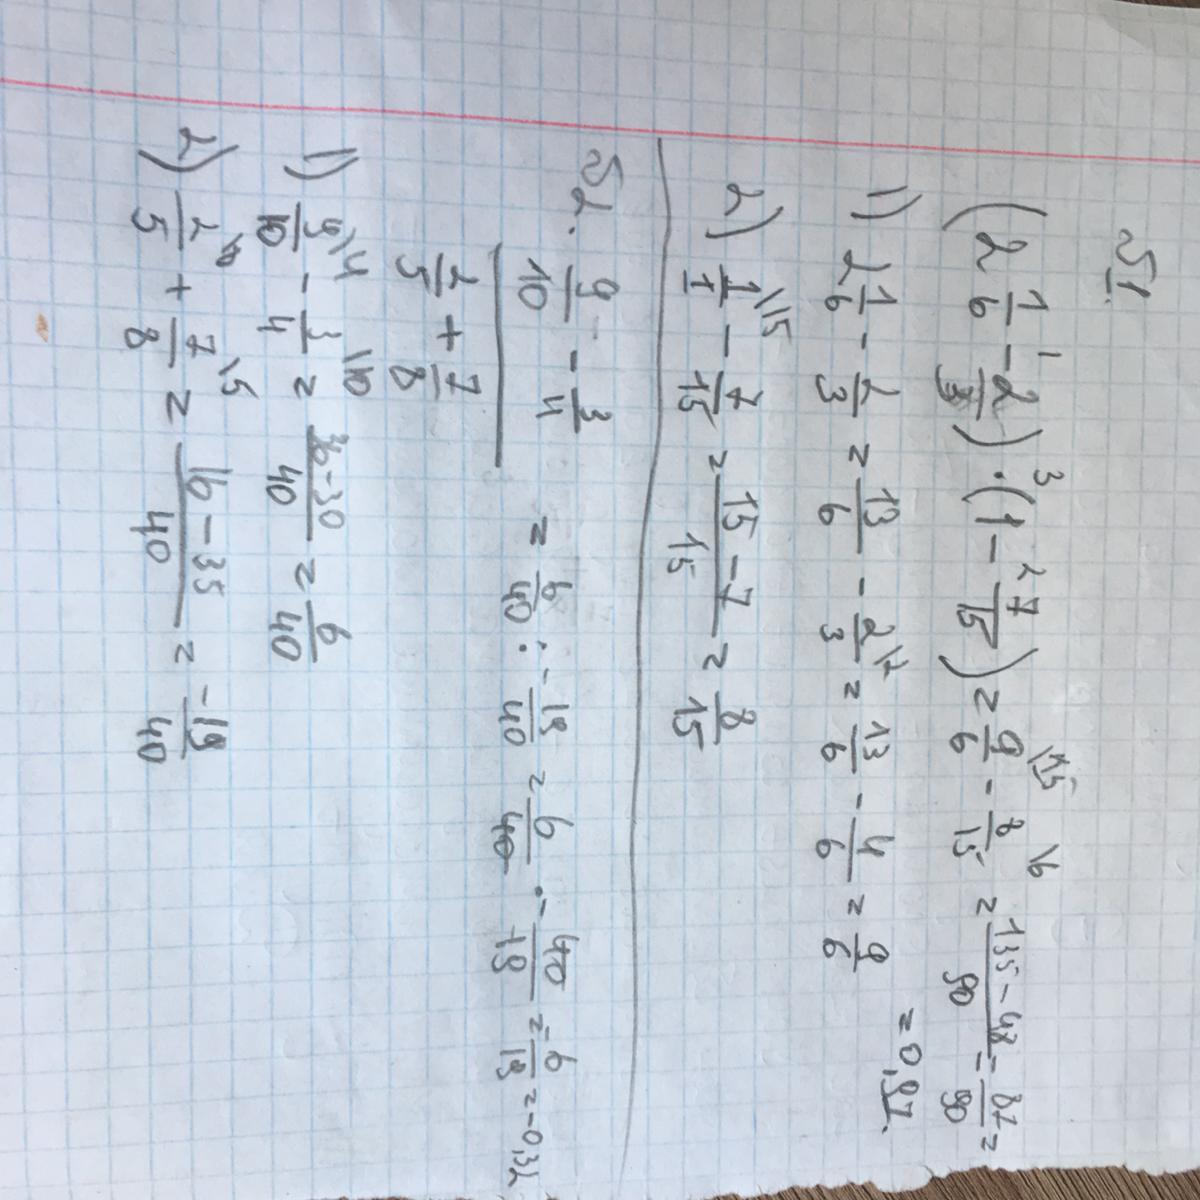 №1.
(2 1/6 - 2/3) · (1 - 7/15) = 9/6 \15 - 8/15 \6 = 135-48/90 = 87/90 =
1 3 2
= 0,97.
1) 2 1/6 - 2/3 = 13/6 - 2/3 \2 = 13/6 - 4/6 = 9/6
2) 1/1 \15 - 7/15 = 15-7/15 = 8/15
№2.
9/10 - 3/4
2/5 + 7/8
= 6/40 : - 19/40 = 6/40 · - 40/19 = 6/19 = -0,32
1) 9/10 \4 - 3/4 \10 = 36-30/40 = 6/40
2) 2/5 \8 + 7/8 \5 = 16-35/40 = -19/40